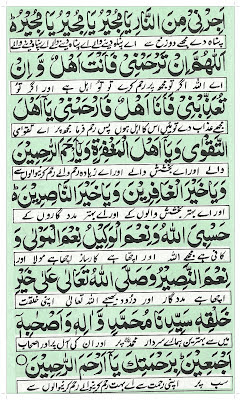 اَجِرْنِيْ مِنَ النَّارِ يَا مُجِيْرُ يَا مُجِيْرُ يَا مُجِيْرُ
پناہ دے مجھے دوزخ سے اے پناہ دینے والے اے پناہ دینے والے
اَللّٰهُمَّ اِنْ تَرْحَمْنِيْ فَاَنْتَ اَهْلٌ وَ اِنْ
اے اللہ اگر تو مجھ پر رحم کرے تو تو اہل ہے اور اگر تو
تُعَذِّبْنِيْ فَاَنَا اَهْلٌ فَارْحَمْنِيْ يَا اَهْلَ
مجھے عذاب دے تو میں اس کا اہل ہوں پس رحم فرما مجھ پر اے
التَّقْوٰى وَيَا اَهْلَ الْمَغْفِرَةِ وَيَا اَرْحَمَ الرّٰحِمِيْنَ
والے اور اے بخشش والے اور اے زیادہ رحم کرنیوالوں سے
وَيَا خَيْرَ الْغَافِرِيْنَ وَيَا خَيْرَ النَّاصِرِيْنَ
اور اے بہتر بخشش والوں کے اور اے بہتر مدد گاروں کے
حَسْبِيَ اللّٰهُ وَنِعْمَ الْوَكِيْلُ نِعْمَ الْمَوْلٰى وَ
کافی ہے مجھے اللہ اور اچھا ہے کارساز اچھا ہے مولا اور
نِعْمَ النَّصِيْرُ وَصَلَّى اللّٰهُ تَعَالٰى عَلٰى خَيْرِ
اچھا ہے مدد گار اور درود بھیجے اللہ تعالیٰ اپنی خلقت
خَلْقِهٖ سَيِّدِنَا مُحَمَّدٍ وَّ اٰلِهٖ وَ اَصْحٰبِهٖ
میں سے بہترین ہمارے سردار محمد پر اور ان کی آل پر اور اصحاب
اَجْمَعِيْنَ بِرَحْمَتِكَ يَا اَرْحَمَ الرّٰحِمِيْنَ
سب پر اپنی رحمت سے اے بہت رحم کرنیوالے رحم کرنیوالوں سے